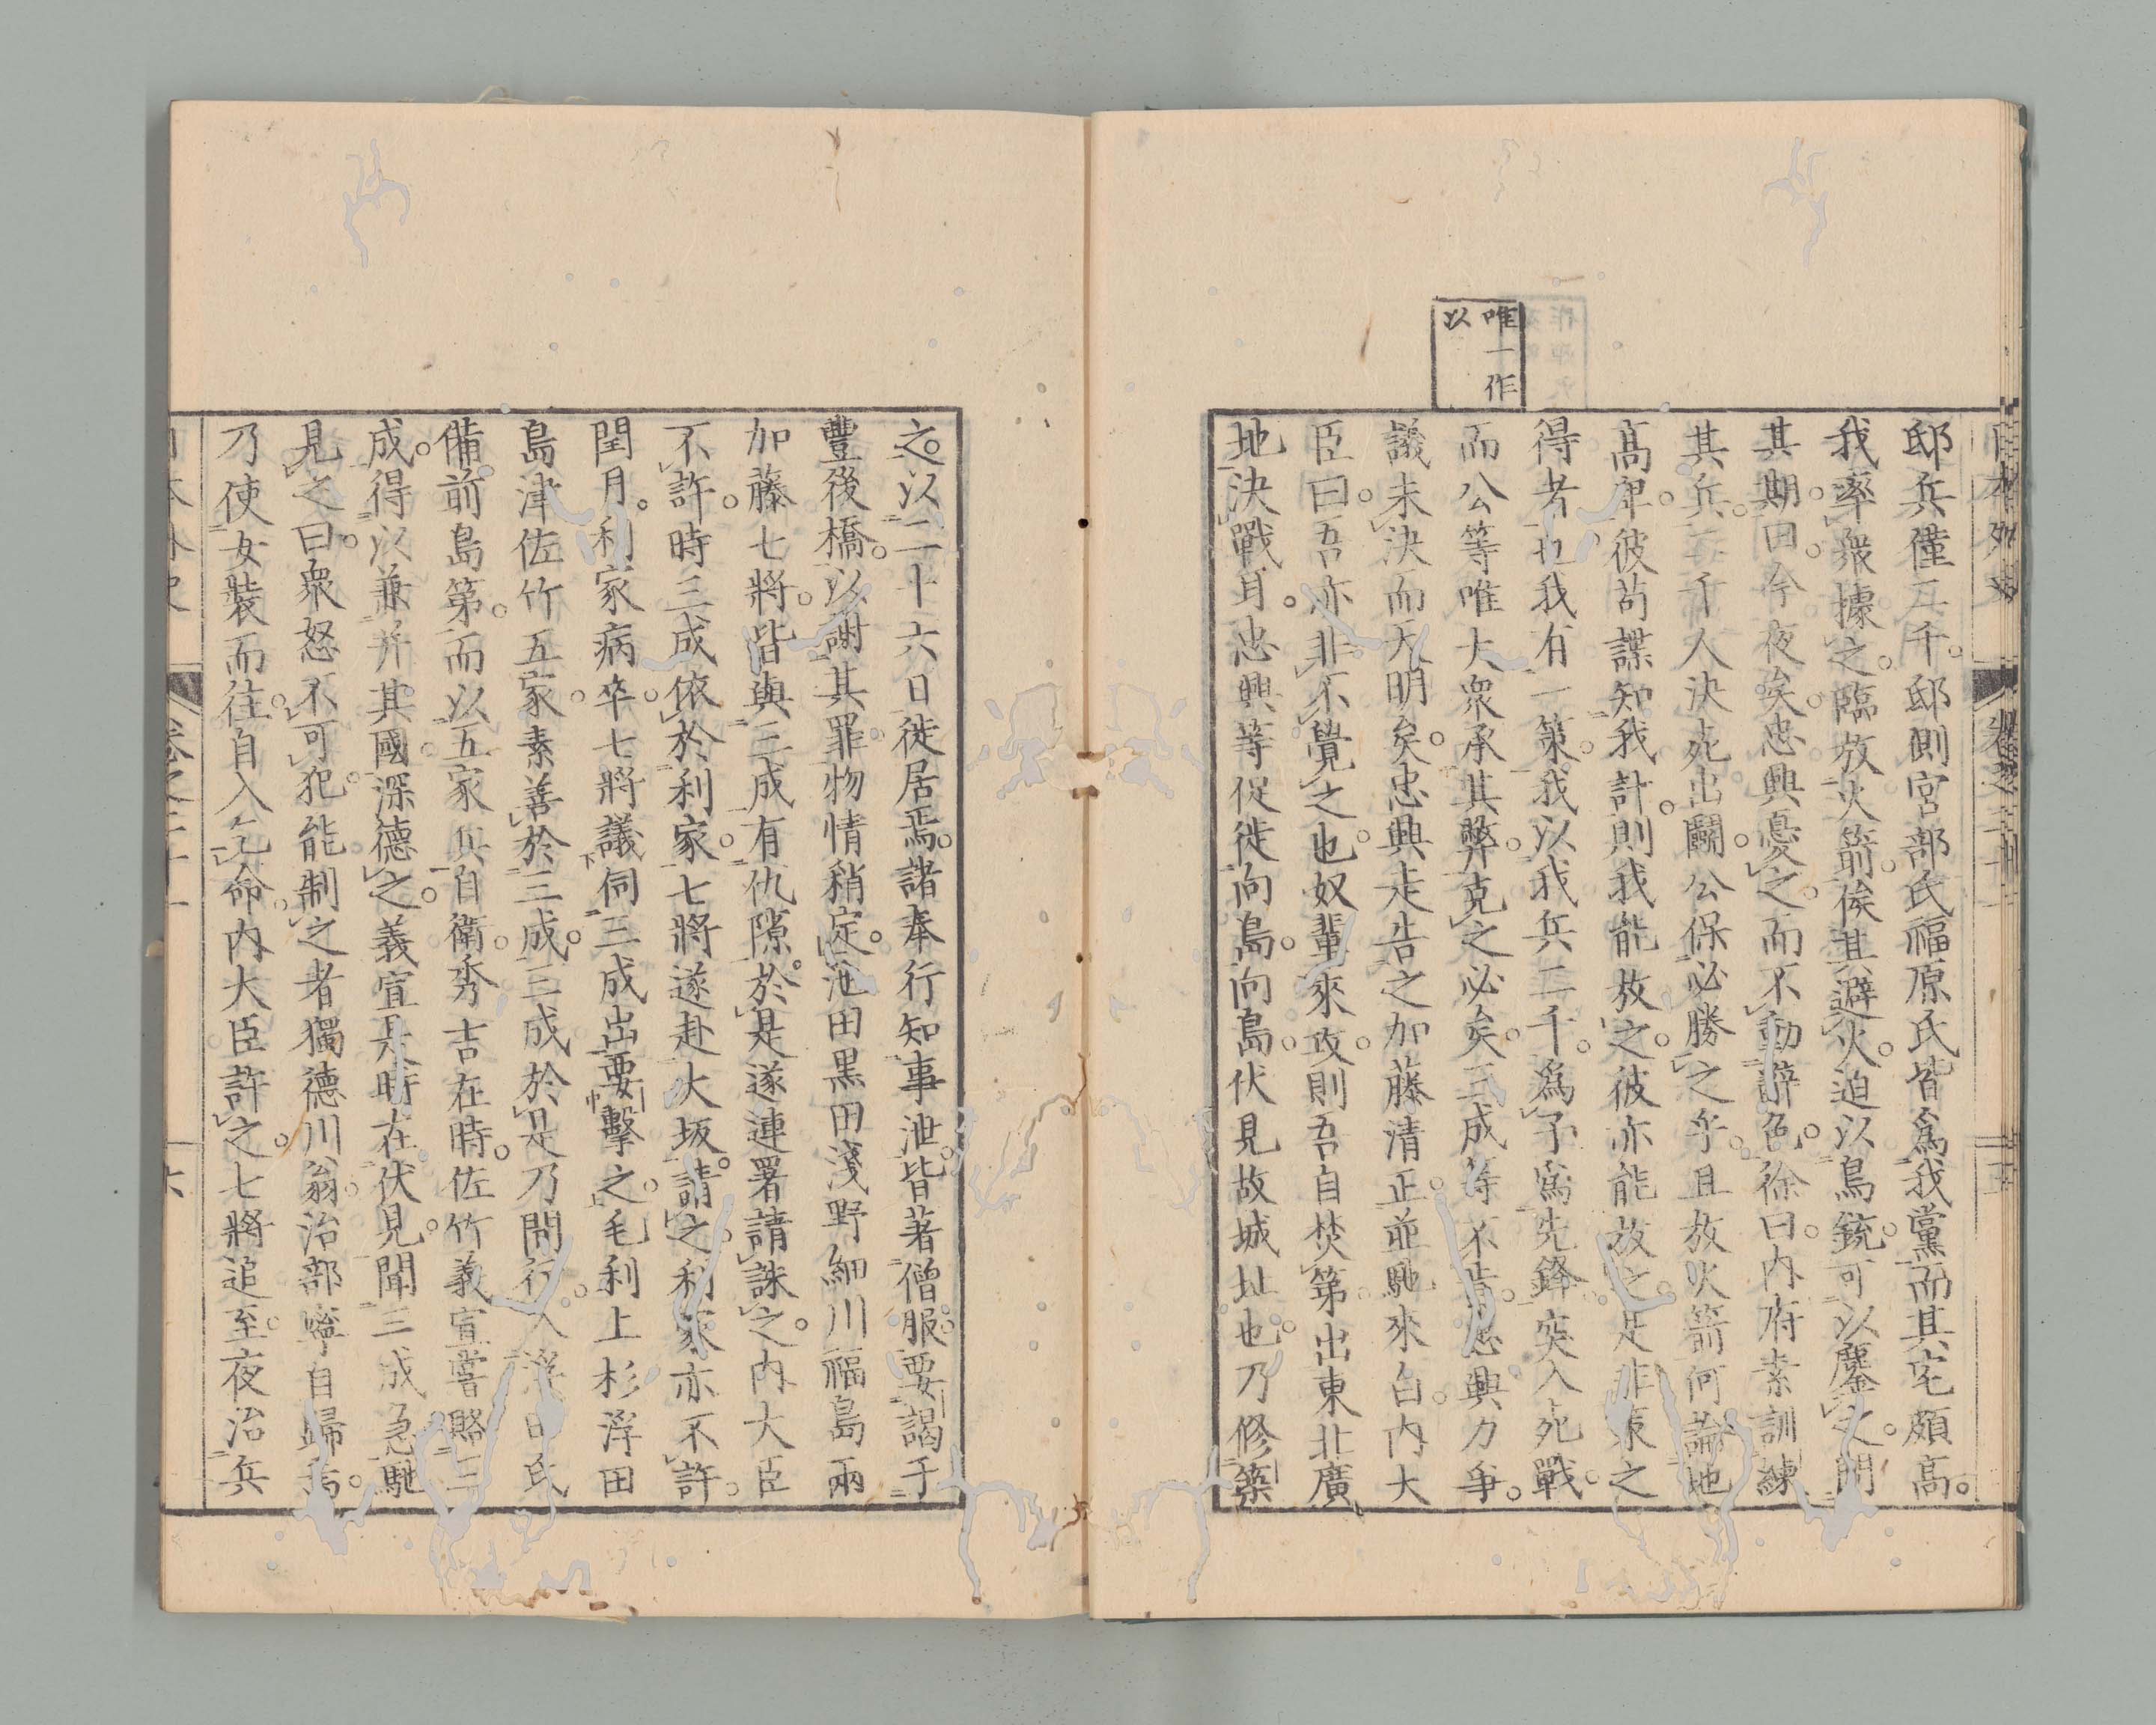 日本外史
卷之二十一
五
唯一作
以
邸兵僅二千。邸側宮部氏福原氏皆爲我黨而其宅頗高。
我率衆據之。臨放火箭。俟其避火迫以鳥銃。可以鏖之。問
其期。曰今夜矣。忠興憂之。而不動辭色。徐曰。内府素訓練
其兵。二千人決死出鬪。公保必勝之乎。且放火箭何論地
高卑。彼苟諜知我計。則我能放之。彼亦能放之。是非策之
得者也。我有一策。我以我兵二千。爲予爲先鋒突入死戰。
而公等唯大衆承其弊。克之必矣。三成等不肯。忠興力爭。
議未決而天明矣。忠興走告之加藤清正。並馳來白。内大
臣曰。吾亦非不覺之也。奴輩來攻。則吾自焚第。出東北廣
地決戰耳。忠興等促徙向島。向島。伏見故城址也。乃修築
之。以二十六日徙居焉。諸奉行知事泄。皆著僧服要謁于
豐後橋。以謝其罪。物情稍定。池田黒田淺野細川福島兩
加藤七將。皆與三成有仇隙。於是遂連署請誅之。内大臣
不許。時三成依於利家。七將遂赴大坂。請之利家亦不許。
閏月。利家病卒。七將議伺三成出要擊之。毛利上杉浮田
島津佐竹五家。素善於三成。三成於是乃間行入浮田氏
備前島第。而以五家兵自衛。秀吉在時。佐竹義宣嘗賂三
成。得以兼并其國。深德之。義宣是時在伏見。聞三成急馳
見之曰。衆怒不可犯。能制之者獨德川翁。治部寧自歸焉。
乃使女裝而往。自入乞命。内大臣許之。七將追至。夜治兵
日本外史
卷之二十一
六